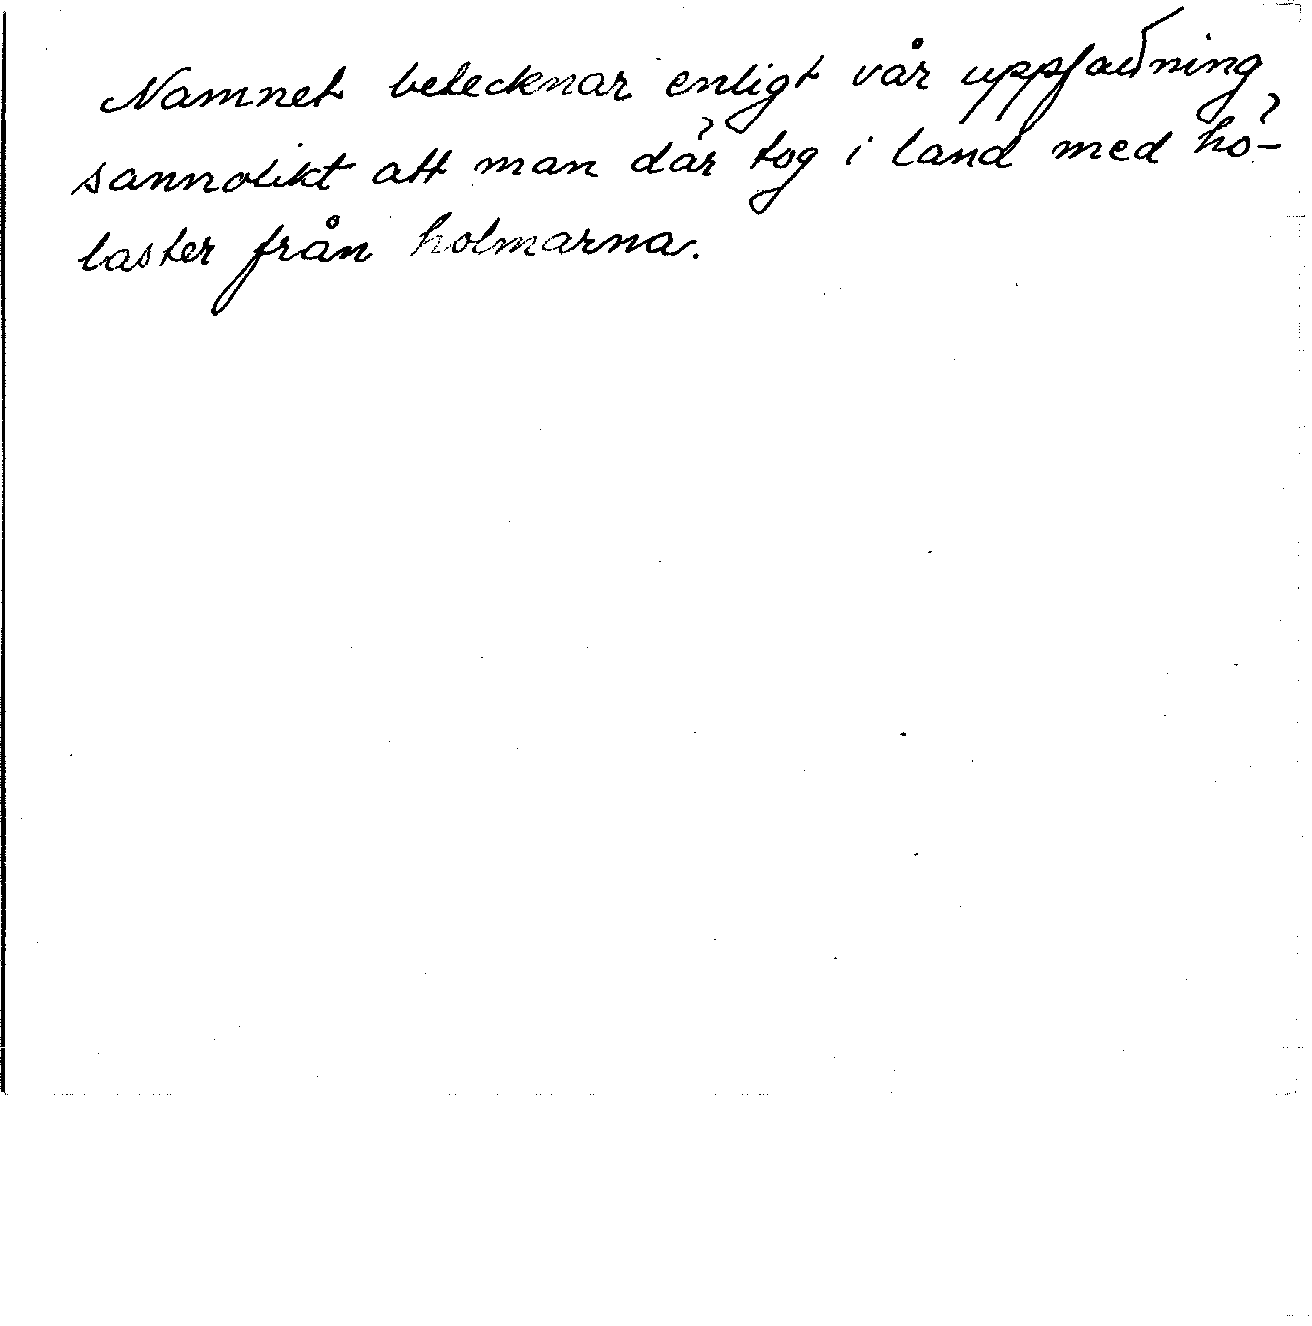 Namnet betecknar enligt vår uppfattning
sannolikt att man där tog i land med hö-
laster från holmarna.